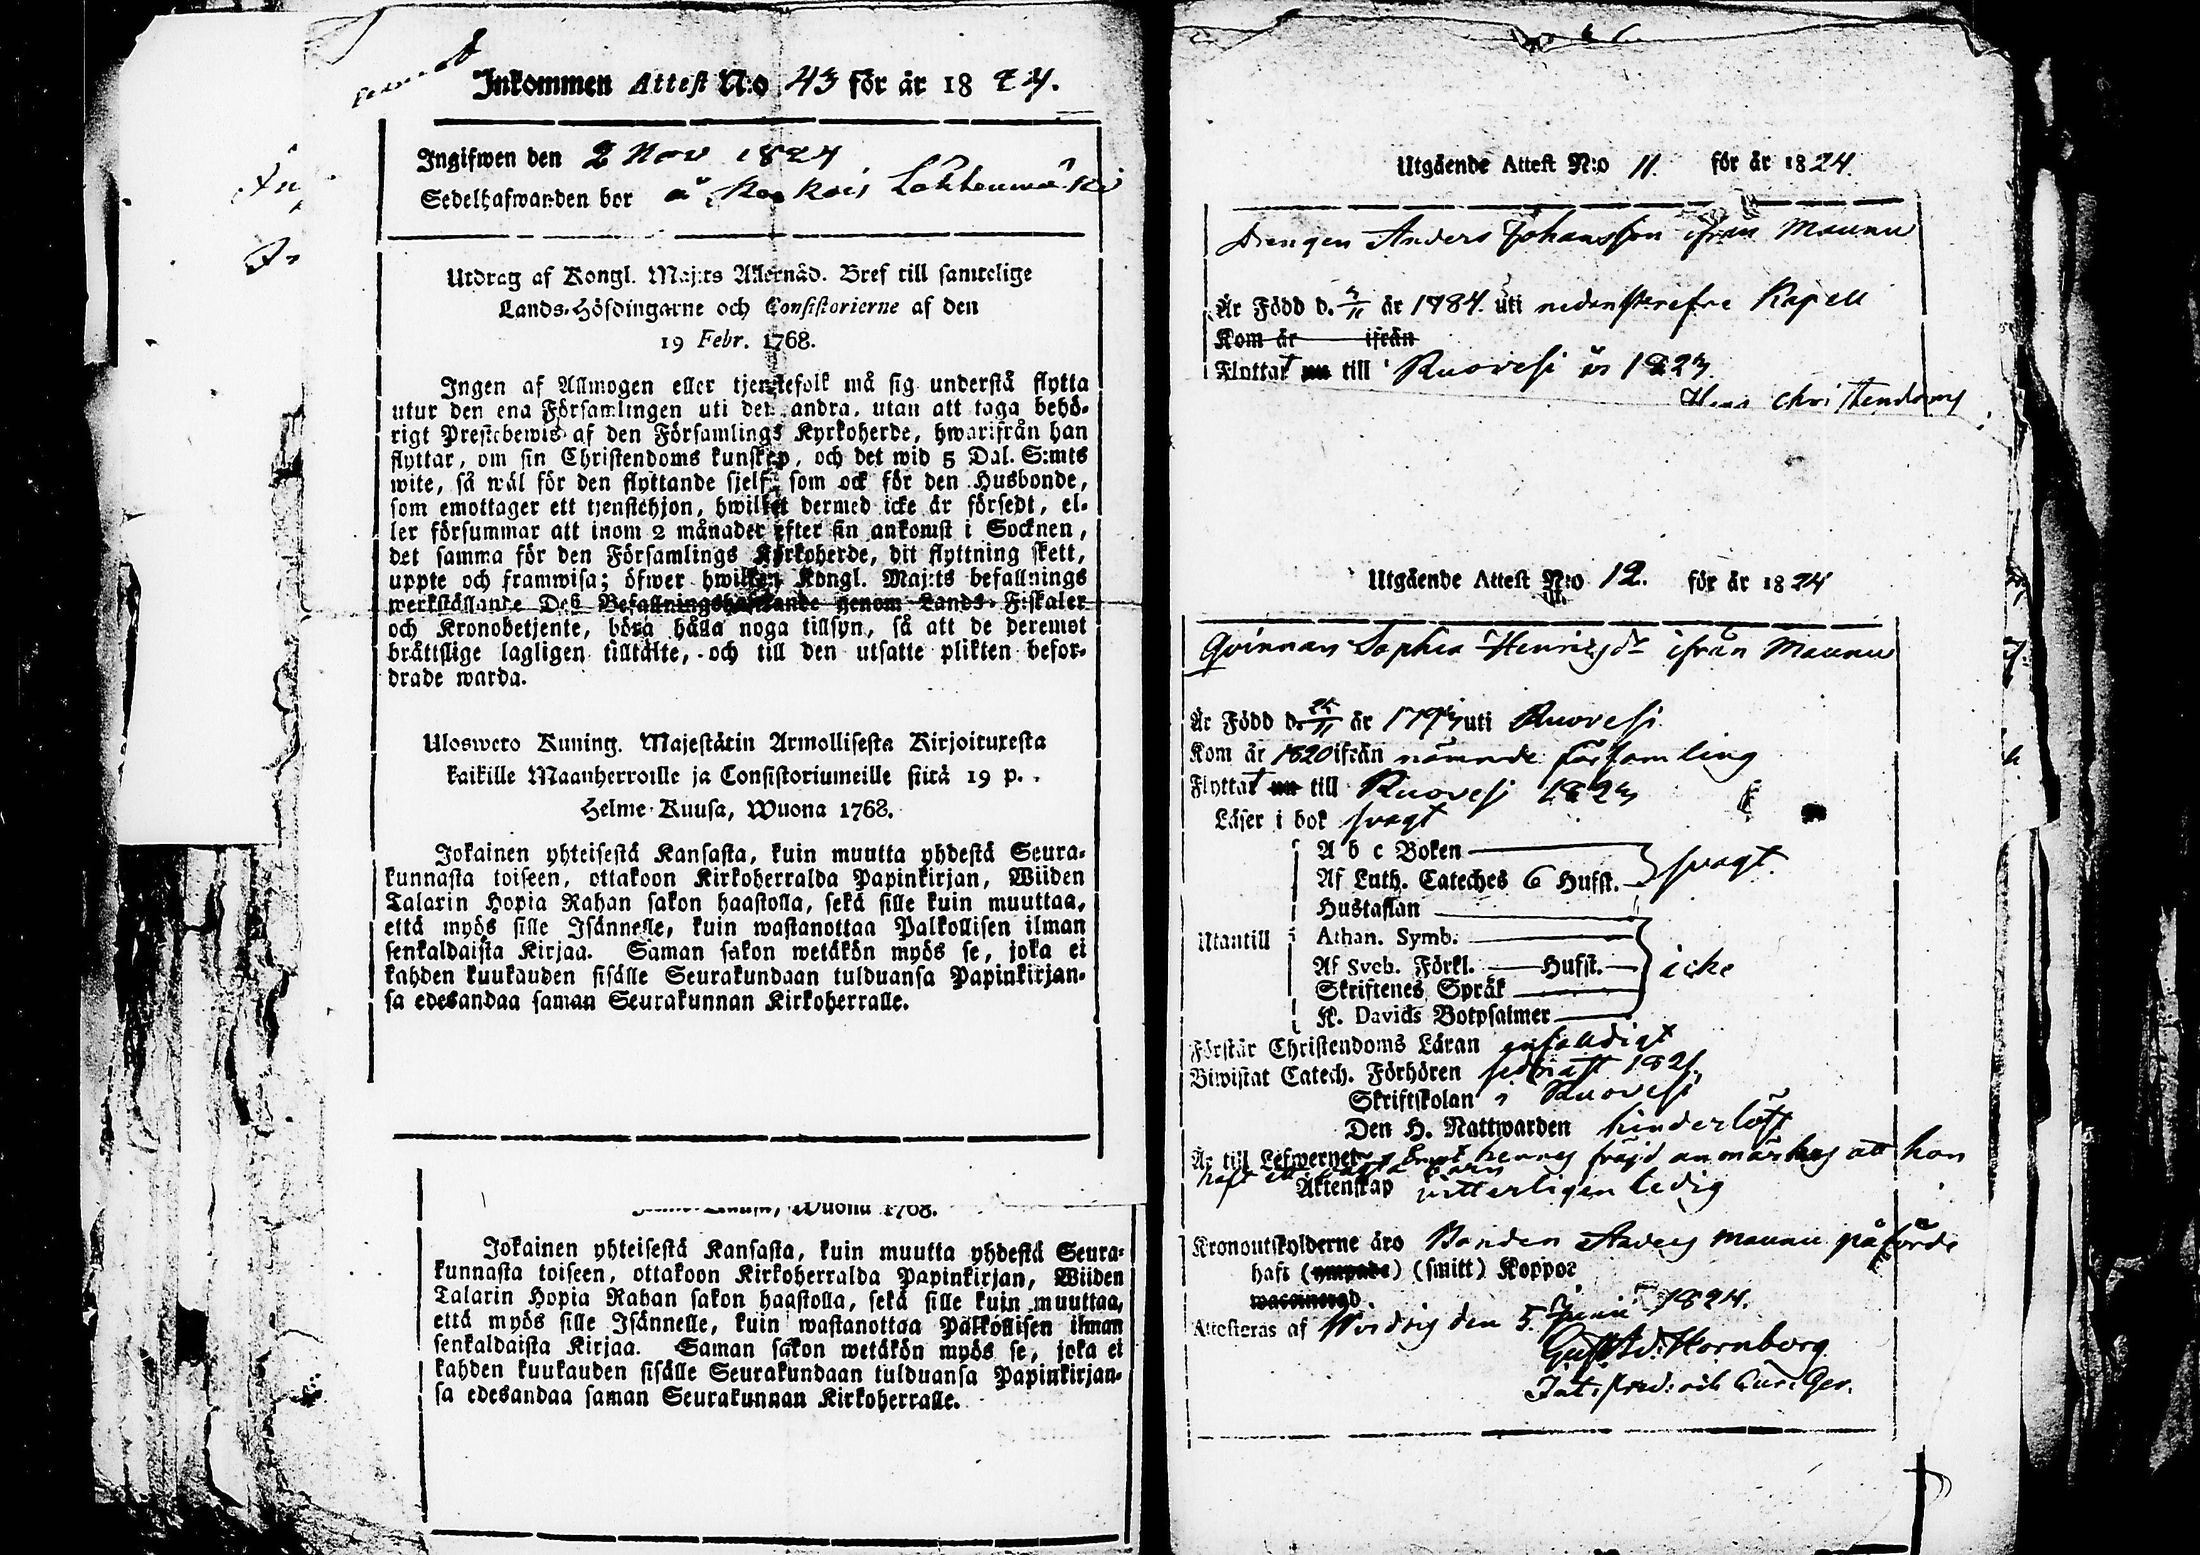 Inkommen Attest N:o 43 för år 1824.
Ingifwen den 2 Nov 1824
Sedelhafwanden bor å
Utdrag af Kongl. Maj:ts Allernåd. Bref till samtelige
Lands-Höfdingarne och Consistorierne af den
19 Febr. 1768.
Ingen af Allmogen eller tjenstefolk må sig understå flytta
utur den ena Församlingen uti den andra, utan att taga behö-
rigt Prestebewis af den Församlings Kyrkoherde, hwarifrån han
flyttar, om sin Christendoms kunskap, och det wid 5 Dal. S:mts
wite, så wäl för den flyttande sjelf, som ock för den Husbonde,
som emottager ett tjenstehjon, hwilket dermed icke är försedt, el-
ler försummar att inom 2 månader efter sin ankomst i Socknen,
det samma för den Församlings Kyrkoherde, dit flyttning skett,
uppte och framwisa; öfwer hwilken Kongl. Maj:ts befallnings
werkställande Deß Befallningshafwande genom Lands-Fiskaler
och Kronobetjente, böra hålla noga tillsyn, så att de deremot
brättslige lagligen tilltälte, och till den utsatte plikten befor-
drade warda.
Ulosweto Kuning. Majestätin Armollisesta Kirjoituxesta
kaikille Maanherroille ja Consistoriumeille siitä 19 p.
Helme-Kuusa, Wuona 1768.
Jokainen yhteisestä Kansasta, kuin muutta yhdestä Seura-
kunnasta toiseen, ottakoon Kirkoherralda Papinkirjan, Wiiden
Talarin Hopia Rahan sakon haastolla, sekä sille kuin muuttaa,
että myös sille Isännelle, kuin wastanottaa Palkollisen ilman
senkaldaista Kirjaa. Saman sakon wetäkön myös se, joka ei
kahden kuukauden sisälle Seurakundaan tulduansa Papinkirjan-
sa edesandaa saman Seurakunnan Kirkoherralle.
Wuona 1768.
Jokainen yhteisestä Kansasta, kuin muutta yhdestä Seura-
kunnasta toiseen, ottakoon Kirkoherralda Papinkirjan, Wiiden
Talarin Hopia Rahan sakon haastolla, sekä sille kuin muuttaa,
että myös sille Isännelle, kuin wastanottaa Palkollisen ilman
senkaldaista Kirjaa. Saman sakon wetäkön myös se, joka ei
kahden kuukauden sisälle Seurakundaan tulduansa Papinkirjan-
sa edesandaa saman Seurakunnan Kirkoherralle.
Utgående Attest N:o 11. för år 1824.
Drengen Anders Johansson ifrån Maunu
Är Född d. år 1784. uti Kapell
Kom år ifrån
Flyttat nu till Ruovesi år 1823.
Hans christendoms
Utgående Attest N:o 12. för år 1824
Qvinnan Sophia Henrigsdr ifrån Maunu
Är Född d. år uti Ruovesi
Kom år 1820 ifrån nämnde församling
Flyttat nu till Ruovesi 1823
Läser i bok svagt
Utantill
A b c Boken
Af Luth. Cateches 6 Hufst. svagt.
Hustaflan
Athan. Symb.
Af Sveb. Förkl. Hufst. icke
Skriftenes Språk
K. Davids Botpsalmer
Förstår Christendoms Läran enfaldigt
Biwistat Catech. Förhören sednast 1821.
Skriftskolan i Ruovesi
Den H. Nattwarden hinderlöst
Är till Lefwernet hennes frejd anmärkes att hon
haft ett oägta barn
Äktenskap witterligen ledig
Kronoutskylderne äro Bonden Anders Maunu påförde
haft (ympade) (smitt) Koppor
waccinerad.
Attesteras af Wirdois den 5 Junii 1824.
Gust. Ad. Hornborg